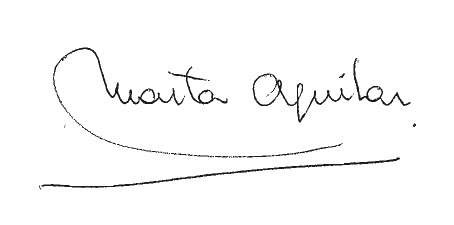 Marta Aguilar